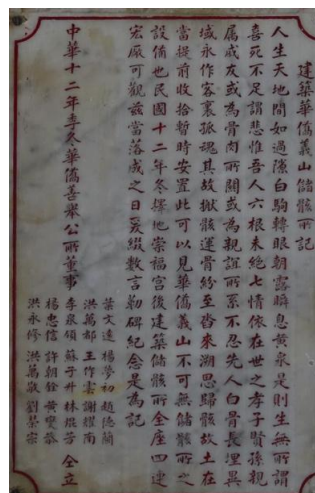 建築華僑義山儲骸所記
人生天地間如過隙白駒轉眼朝露瞬息黃泉是則生無所謂
喜死不足謂悲惟吾人六根未絕七情依在世之孝子賢孫親
屬戚友或為骨肉所關或為親誼所系不忍先人白骨長埋異
域永作客裏孤魂其故掀骸運骨紛至沓來溯思歸骸故土在
當提前收拾暫時安置此可以見華僑義山不可無儲骸所之
設備也民國十二年冬擇地崇福宮後建築儲骸所全座四達
宏厰可觀茲當落成之日爰綴數言勒碑紀念是為記
中華十二年季冬華僑善舉公所董事
葉文遠 楊夢初 趙德蘭
洪萬都 王作雲 謝耀南
李泉領 蘇子升 林珠芳
楊忠信 許朝銓 黃燮恭
洪永修 洪萬敬 劉榮宗
仝立